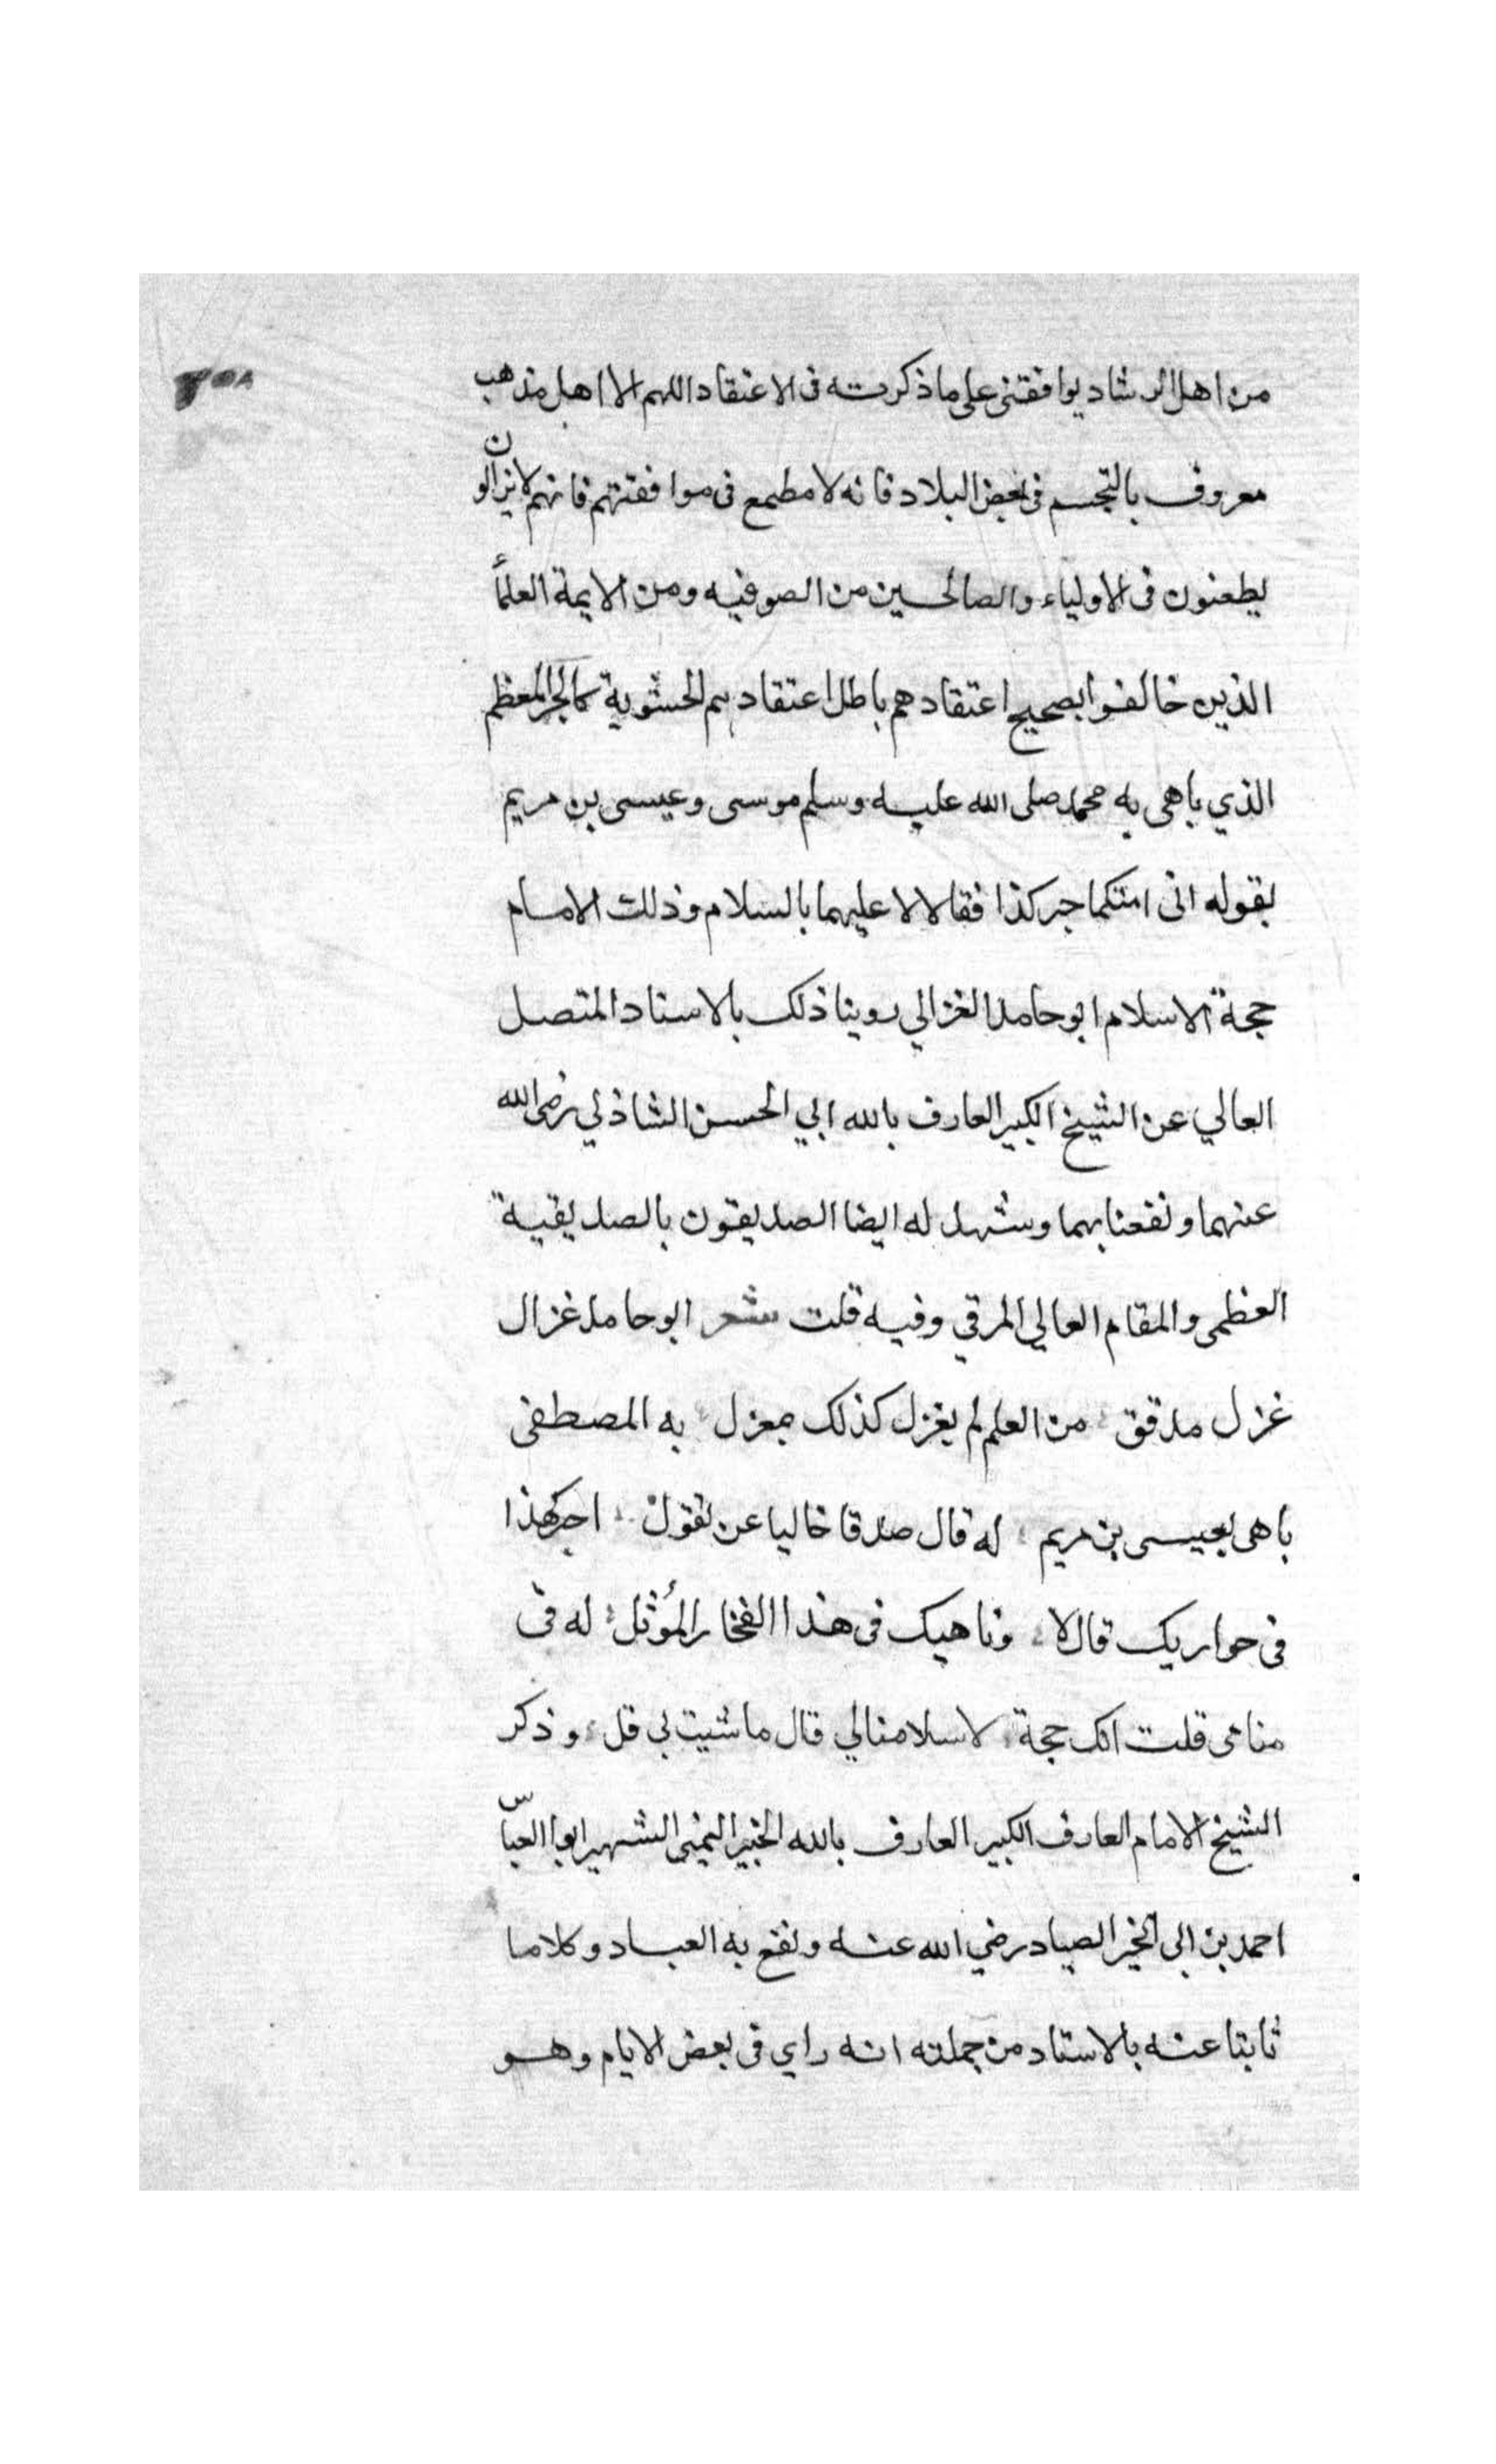 ٢٥٨
من اهل الرشاد يوافقنى على ما ذكرته فى الاعتقاد اللهم الا اهل مذهب
معروف بالتجسم فى بعض البلاد فانه لا مطمع فى موافقتهم فانهم لا يزالون
يطعنون فى الاولياء والصالحين من الصوفيه ومن الايمة العلمأ
الذين خالفوا بصحيح اعتقادهم باطل اعتقادهم الحشوية كالحبر المعظم
الذي باهى به محمد صلى الله عليه وسلم موسى وعيسى بن مريم
بقوله انى امتكما حبر كذا فقالا لا عليهما بالسلام وذلك الامام
حجة الاسلام ابو حامد الغزالي روينا ذلك بالاسناد المتصل
العالي عن الشيخ الكبير العارف بالله ابي الحسن الشاذلي رضى الله
عنهما ونفعنا بهما وشهد له ايضا الصديقون بالصديقية
العظمى والمقام العالي المرقي وفيه قلت شعر ابو حامد غزال
غزل مدقق من العلم لم يغزل كذلك بمغزل به المصطفى
باهى بعيسى بن مريم له قال صدقا خاليا عن تقول احبر كهذا
فى حواريك قال لا وناهيك فى هذا الفخار المؤثل له فى
منامى قلت انك حجة لاسلامنا لي قال ما شيت لي قل وذكر
الشيخ الامام العارف الكبير العارف بالله الخبير اليمنى الشهير ابو العباس
احمد بن ابى الخير الصياد رضي الله عنه ونفع به العباد وكلاما
ثابتا عنه بالاسناد من جملته انه راي فى بعض الايام وهو